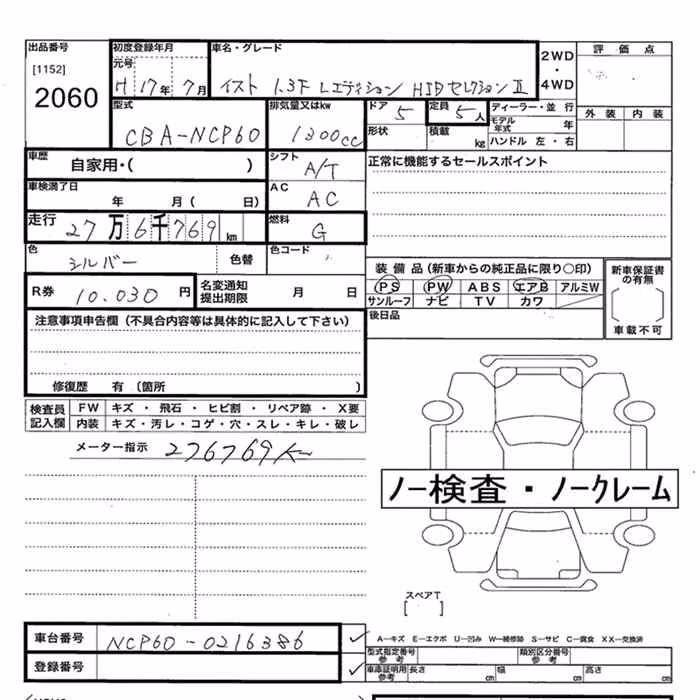 出品番号 初度登録年月 車名・グレード 2WD・4WD 評価点
[1152] 元号
2060 H 17年 7月 イスト 1.3F Lエディション HIDセレクションⅡ
型式 排気量又はkw ドア 5 定員 5人 ディーラー・並行 外装 内装
CBA-NCP60 1300cc 形状 積載 kg モデル年式 年
ハンドル 左・右
車歴 自家用・( ) シフト A/T 正常に機能するセールスポイント
車検満了日 年 月( 日) AC AC
走行 27万6千769km 燃料 G
色 シルバー 色替 色コード
装備品(新車からの純正品に限り○印) 新車保証書の有無
PS PW ABS エアB アルミW
サンルーフ ナビ TV カワ
後日品 車載不可
R券 10.030円 名変通知提出期限 月 日
注意事項申告欄(不具合内容等は具体的に記入して下さい)
修復歴 有〔箇所 〕
検査員記入欄 FW キズ・飛石・ヒビ割・リペア跡・X要
内装 キズ・汚レ・コゲ・穴・スレ・キレ・破レ
メーター指示 276769K
ノー検査・ノークレーム
スペアT
[ ]
車台番号 NCP60-0216386
登録番号
A-キズ E-エクボ U-凹み W-補修跡 S-サビ C-腐食 XX-交換済
型式指定番号 参考 類別区分番号 参考
車庫証明用 参考 長さ cm 幅 cm 高さ cm